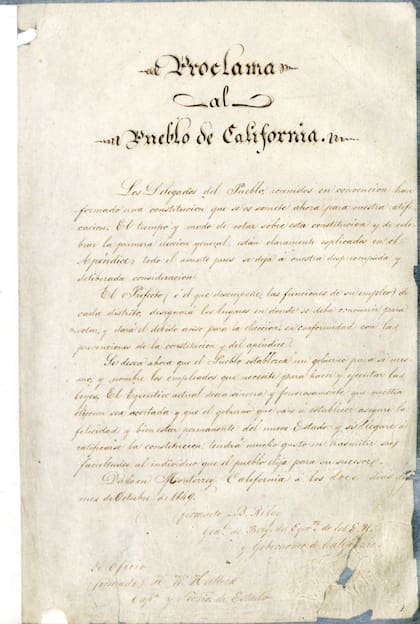 Proclama
al
Pueblo de California.
Los Delegados del Pueblo, reunidos en convencion han
formado una constitucion que se os somete ahora para vuestra ratifi-
cacion. El tiempo y modo de votar sobre esta constitucion y de cele-
brar la primera eleccion general, estan claramente esplicados en el
Apéndice; todo el asunto pues se deja á vuestra despreocupada y
deliberada consideracion.
El Prefecto (ó él que desempeñe las funciones de su empleo) de
cada distrito, designará los lugares en donde se debe concurrir para
votar, y dará el debido aviso para la eleccion en conformidad con las
prevenciones de la constitucion y del apéndice.
Se desea ahora que el Pueblo establezca un gobierno para sí mis-
mo, y nombre los empleados que necesite para hacer y ejecutar las
leyes. El Ejecutivo actual desea sincera y fervorosamente que vuestra
eleccion sea acertada y que el gobierno que vais á establecer asegure la
felicidad y bien estar permanente del nuevo Estado y si llegare á
ratificarse la constitucion, tendrá mucho gusto en trasmitir sus
facultades al individuo que el pueblo elija para su sucesor.
Dada en Monterrey, California á los doce dias del
mes de Octubre de 1849.
firmado, B. Riley
Gral. de Brig. del Egerto. de los E. U.
y Gobernador de California.
De Oficio
firmado H. W. Halleck
Capn. y Secrio. de Estado